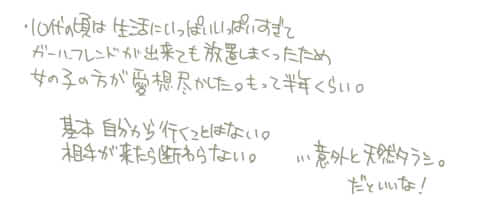 ・10代の頃は生活にいっぱいいっぱいすぎて
ガールフレンドが出来ても放置しまくったため
女の子の方が愛想尽かした。もって半年くらい。
基本自分から行くことはない。
相手が来たら断わらない。 …意外と天然タラシ。
だといいな!